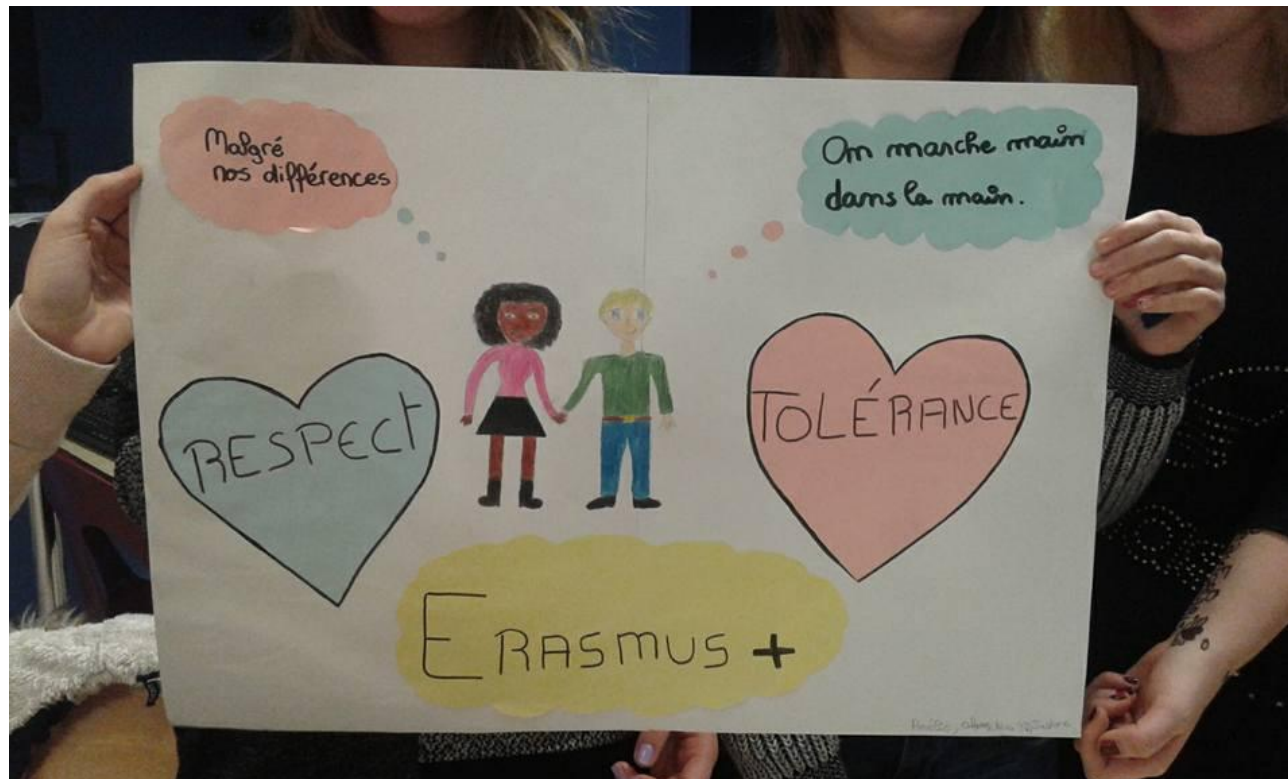 Malgré
nos différences
On marche main
dans la main.
RESPECT
TOLÉRANCE
ERASMUS +